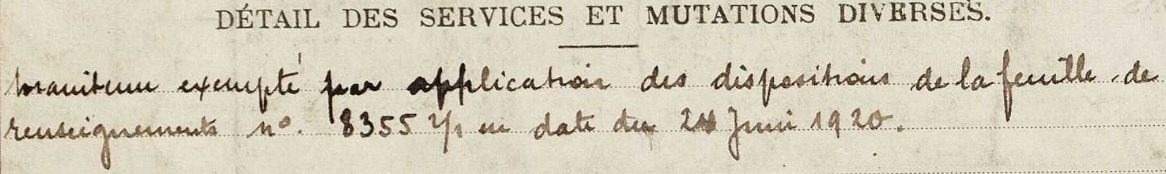 DÉTAIL DES SERVICES ET MUTATIONS DIVERSES.
Maintenu exempté par application des dispositions de la feuille de
renseignements nº. 8355 2/1 en date du 24 Juin 1920.